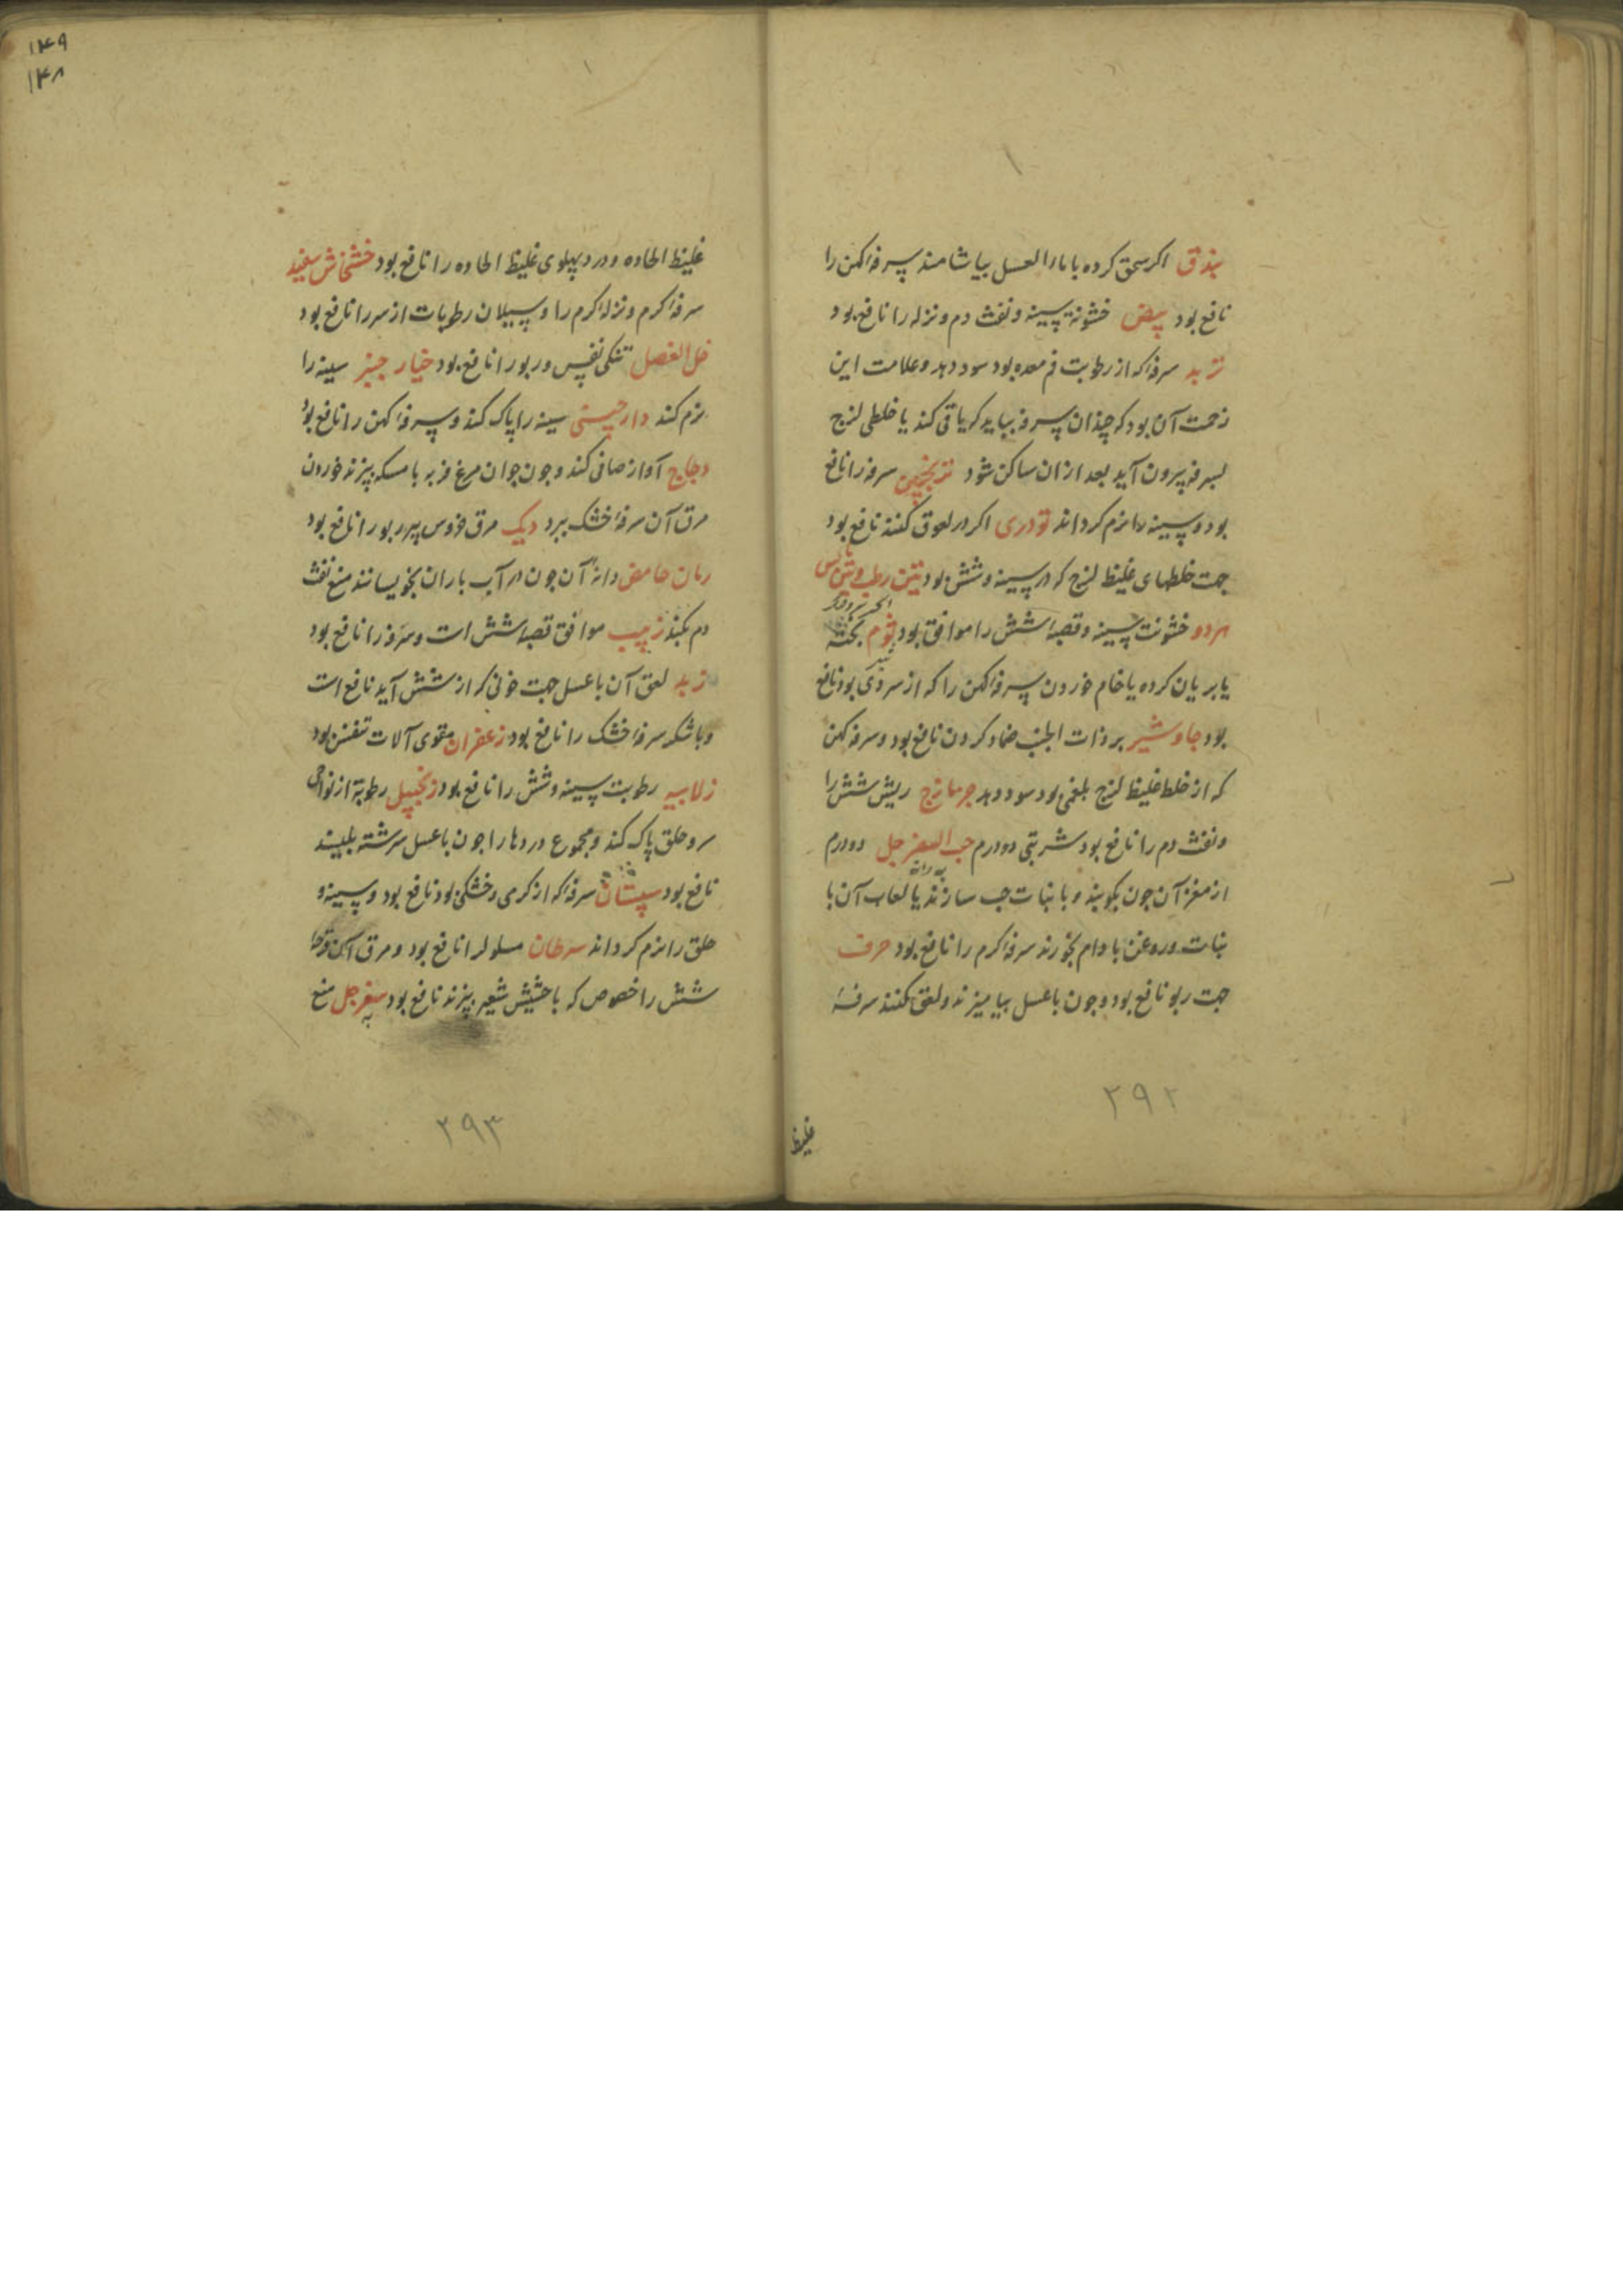 بندق اکر سحق کرده با ماء العسل بیاشامند سرفهٔ کهن را
نافع بود بیض خشونة سینه و نفث دم و نزله را نافع بود
تربد سرفهٔ که از رطوبت فم معده بود سود دهد و علامت این
زحمت آن بود که چندان سرفه بیاید که یا قی کند یا خلطی لزج
بسرفه بیرون آید بعد ازان ساکن شود ترنجبین سرفه را نافع
بود و سینه را نرم کرداند تودری اکر در لعوق کنند نافع بود
جهت خلطهای غلیظ لزج که در سینه و شش بود تین رطب و تین یابس
هر دو خشونت سینه و قصبهٔ شش را موافق بود ثوم پخته
یا بریان کرده یا خام خوردن سرفهٔ کهن را که از سردی بود نافع
بود جاوشیر بر ذات الجنب ضماد کردن نافع بود و سرفه کهن
که از خلط غلیظ لزج بلغمی بود سود دهد جرمازج ریش شش را
و نفث دم را نافع بود شربتی دو درم حب السفرجل دو درم
به دانه
از مغز آن جون بکوبند و با نبات حب سازند یا لعاب آن با
نبات و روغن بادام بخورند سرفهٔ کرم را نافع بود حرف
جهت ربو نافع بود و جون با عسل بیامیزند و لعق کنند سرفهٔ
۲۹۲
غلیظ
۱۴۹
۱۴۸
غلیظ الماده و درد پهلوی غلیظ الماده را نافع بود خشخاش سفید
سرفهٔ کرم و نزلهٔ کرم را و سیلان رطوبات از سر را نافع بود
خل العنصل تنکی نفس و ربو را نافع بود خیار جنبر سینه را
نرم کند دارچینی سینه را پاک کند و سرفهٔ کهن را نافع بود
دجاج آواز صافی کند و جون جوان مرغ فربه با مسکه بپزند خوردن
مرق آن سرفهٔ خشک ببرد دیک مرق خروس پیر ربو را نافع بود
رمان حامض دانهٔ آن جون در آب باران بخویسانند منع نفث
دم بکند زبیب موافق قصبهٔ شش است و سرفه را نافع بود
زبد لعق آن با عسل جهت خونی که از شش آید نافع است
و با شکر سرفهٔ خشک را نافع بود زعفران مقوی آلات تنفس بود
زلابیه رطوبت سینه و شش را نافع بود زنجبیل رطوبة از نواحی
سر و حلق پاک کند و مجموع دردها را جون با عسل سرشته بلیسند
نافع بود سپستان سرفهٔ که از کرمی و خشکی بود نافع بود و سینه و
حلق را نرم کرداند سرطان مسلول را نافع بود و مرق آن قرحهٔ
شش را خصوص که با حشیش شعیر بپزند نافع بود سفرجل منع
به
۲۹۳